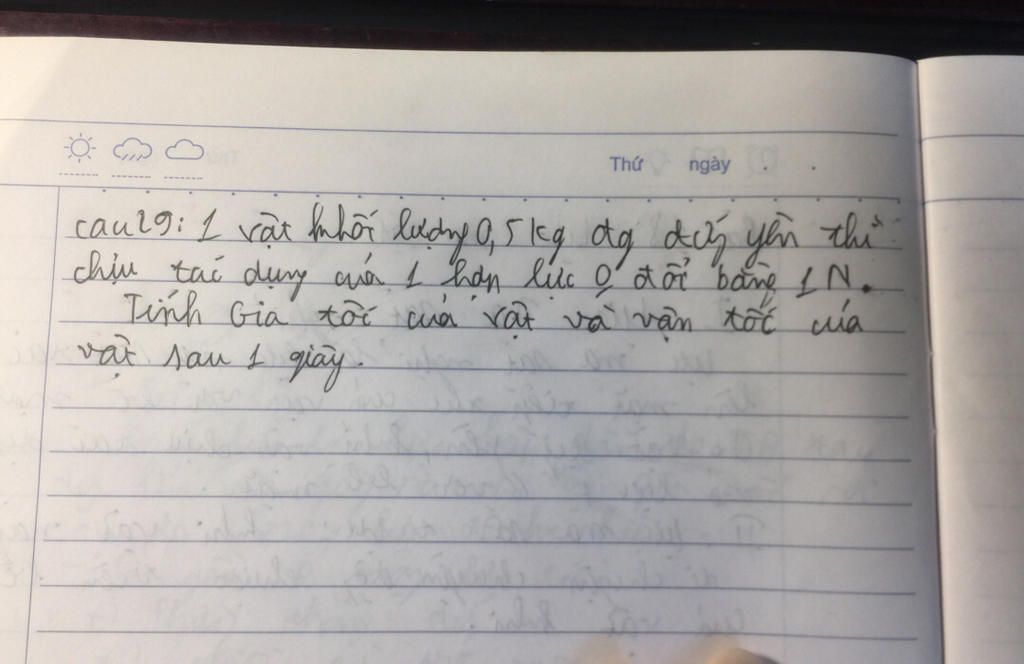 Thứ ngày . .
câu 29: 1 vật khối lượng 0,5 kg đg đứg yên thì
chịu tác dụng của 1 hợp lực 0 đổi bằng 1 N.
Tính Gia tốc của vật và vận tốc của
vật sau 1 giây.